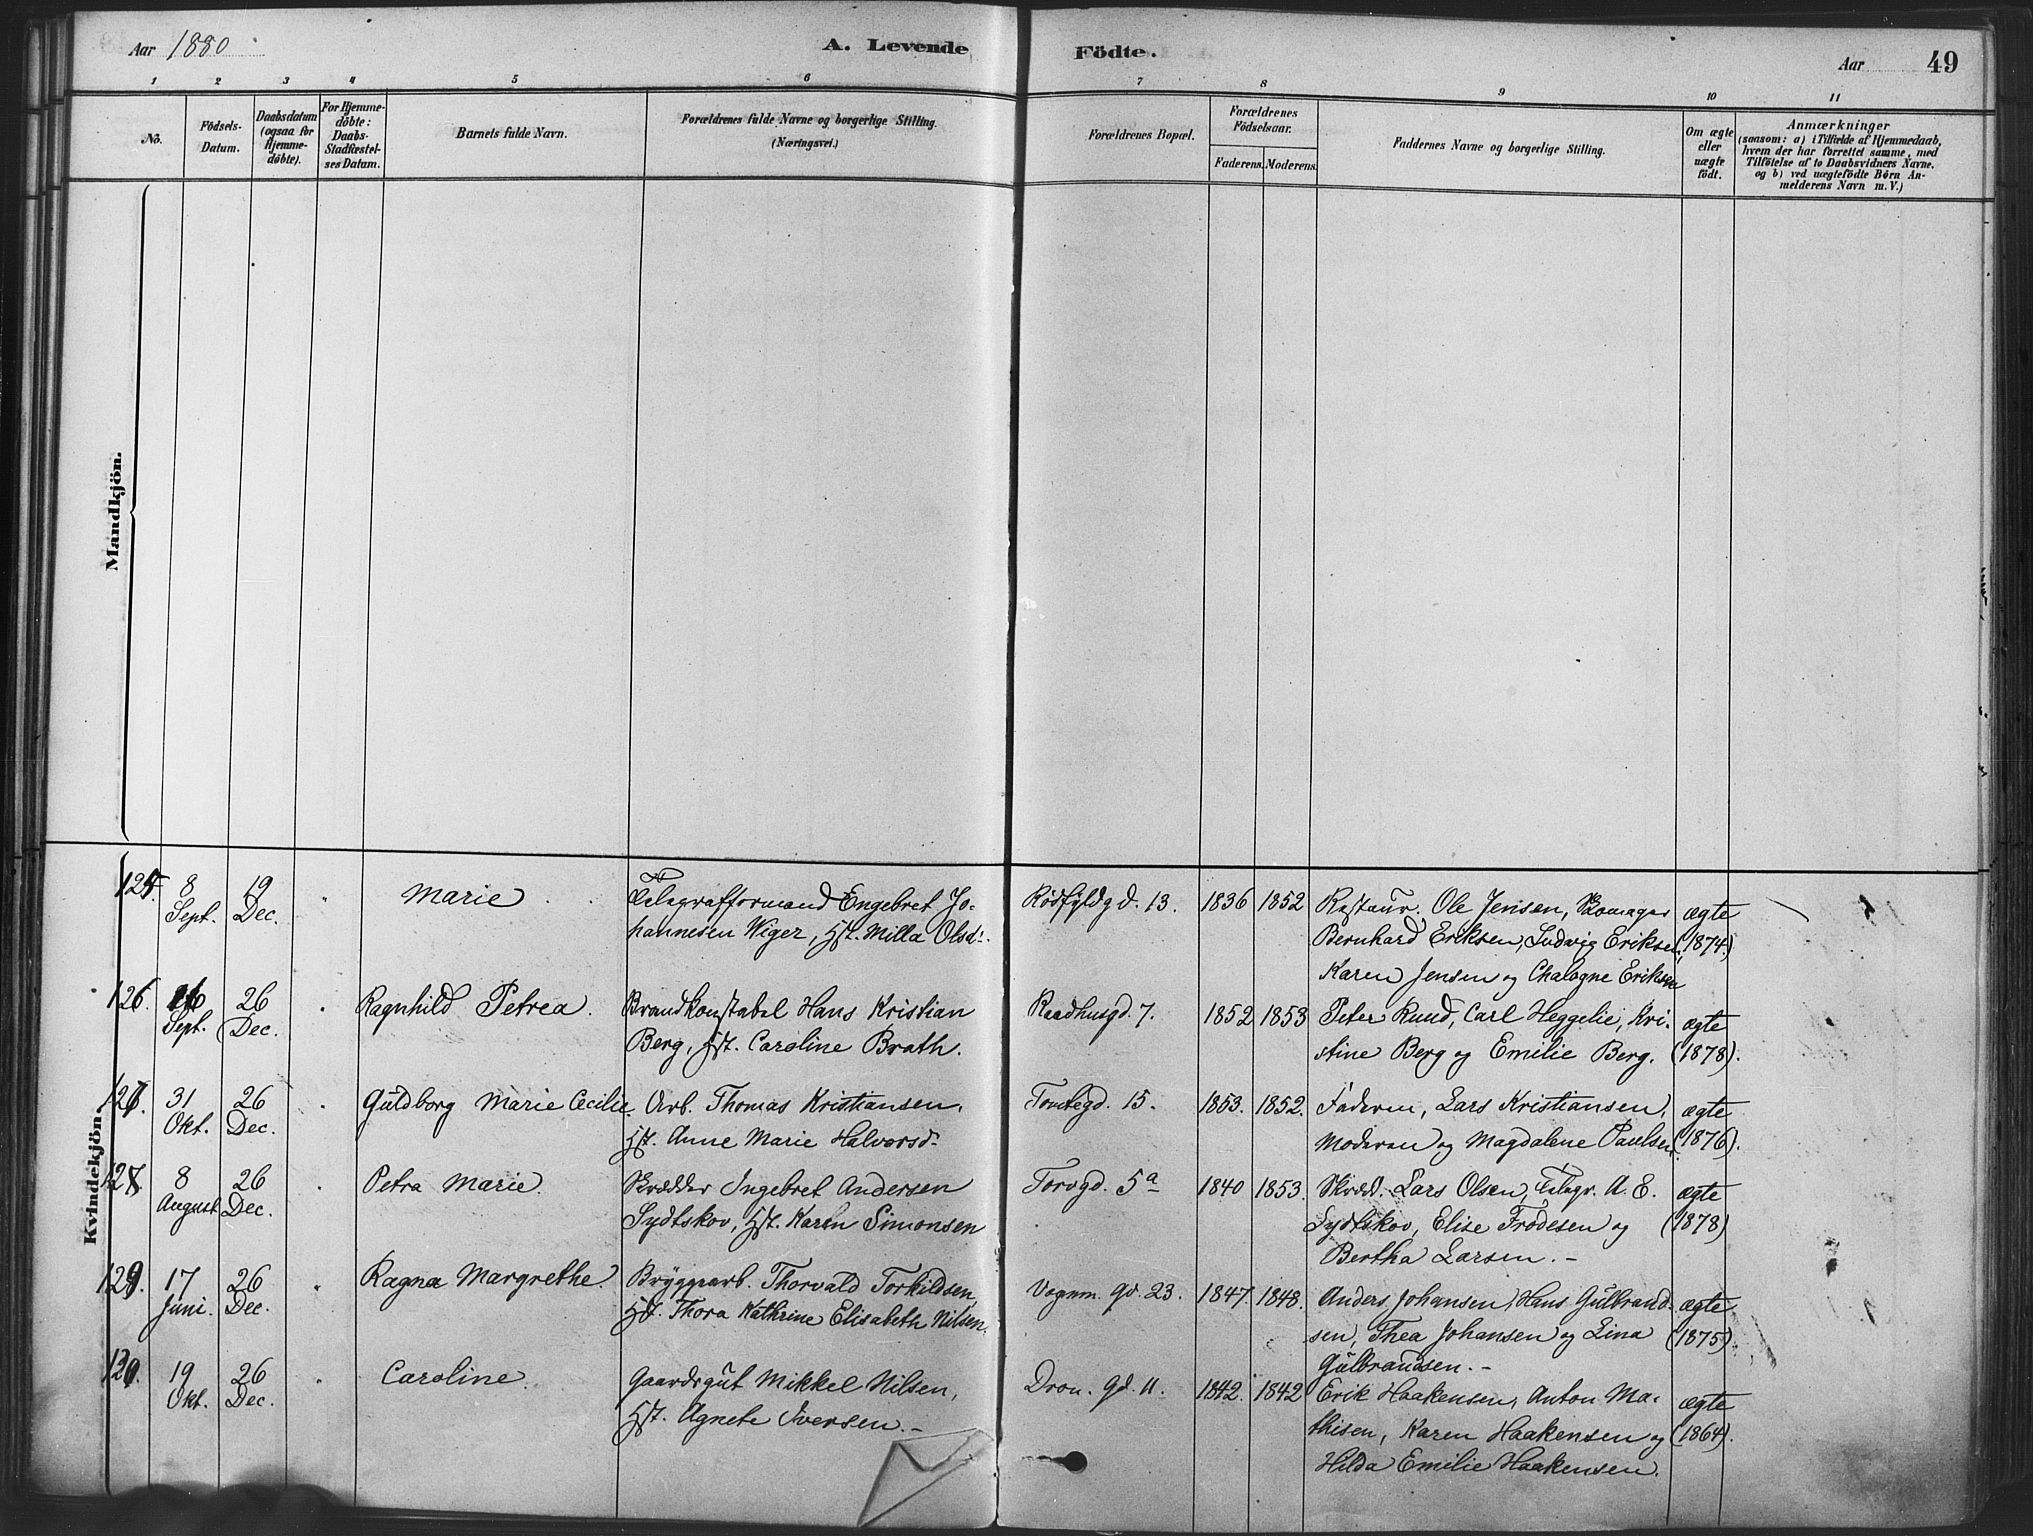 Aar 1880
A. Levende
Födte.
Aar
49
1 2 3 4 5 6 7 8 9 10 11
No.
Födsels-
Datum.
Daabsdatum
(ogsaa for
Hjemme-
döbte).
For Hjemme-
döbte:
Daabs-
Stadfæstel-
ses Datum.
Barnets fulde Navn.
Forældrenes fulde Navne og borgerlige Stilling.
(Næringsvei.)
Forældrenes Bopæl.
Forældrenes
Födselsaar.
Faderens. Moderens.
Faddernes Navne og borgerlige Stilling.
Om ægte
eller
uægte
födt.
Anmærkninger
(saasom: a) i Tilfælde af Hjemmedaab,
hvem der har forrettet samme, med
Tilföielse af to Daabsvidners Navne.
og b) ved uægtefödte Börn An-
melderens Navn m. V.)
Mandkjön.
Kvindekjön.
125. 8 19 Marie Telegrafformand Engebret Jo- Rödfyldgd. 13. 1836 1852 Restaur. Ole Jensen, ægte
Sept. Dec. hannesen Wiger, Hst. Milla Olsd. Bernhard Eriksen, Ludvig Eriksen, (1874.)
Karen Jensen og Eriksen
126. 26 Ragnhild Petrea. Brandkonstabel Hans Kristian Raadhusgd. 7. 1852 1853 Peter Ruud, Carl Heggelie, Kri- ægte
Sept. Dec. Berg, Hst. Caroline Brath. stine Berg og Emilie Berg. (1878).
31 26 Guldborg Marie Cecilie Arb. Thomas Kristiansen, 15. 1853. 1852. Faderen, Lars Kristiansen, ægte
Okt. Dec. Hst. Anne Marie Halvorsd. Moderen og Magdalene Paulsen. (1876).
8 26 Petra Marie. Skrædder Ingebret Andersen Torvgd. 5a 1840 1853. Skræd. Lars Olsen, Telegr. A. E. ægte
August Dec. Sydtskov, Hst. Karen Simonsen Sydtskov, Elise Frodesen og (1878)
Bertha Larsen. -
129. 17 26 Ragna Margrethe. Bryggearb. Thorvald Torkildsen Vognm. gd. 23. 1847. 1848. Anders Johansen, Hans Gulbrand- ægte
Juni. Dec. Hst. Thora Kathrine Elisabeth Nilsen. sen, Thea Johansen og Lina (1875).
Gulbrandsen. -
19 26 Caroline. Gaardsgut Mikkel Nilsen, Dron. gd. 11. 1842. 1842 Erik Haakensen, Anton Ma- ægte
Okt. Dec. Hst. Agnete Iversen. - thisen, Karen Haakensen og (1864).
Hilda Emilie Haakensen.